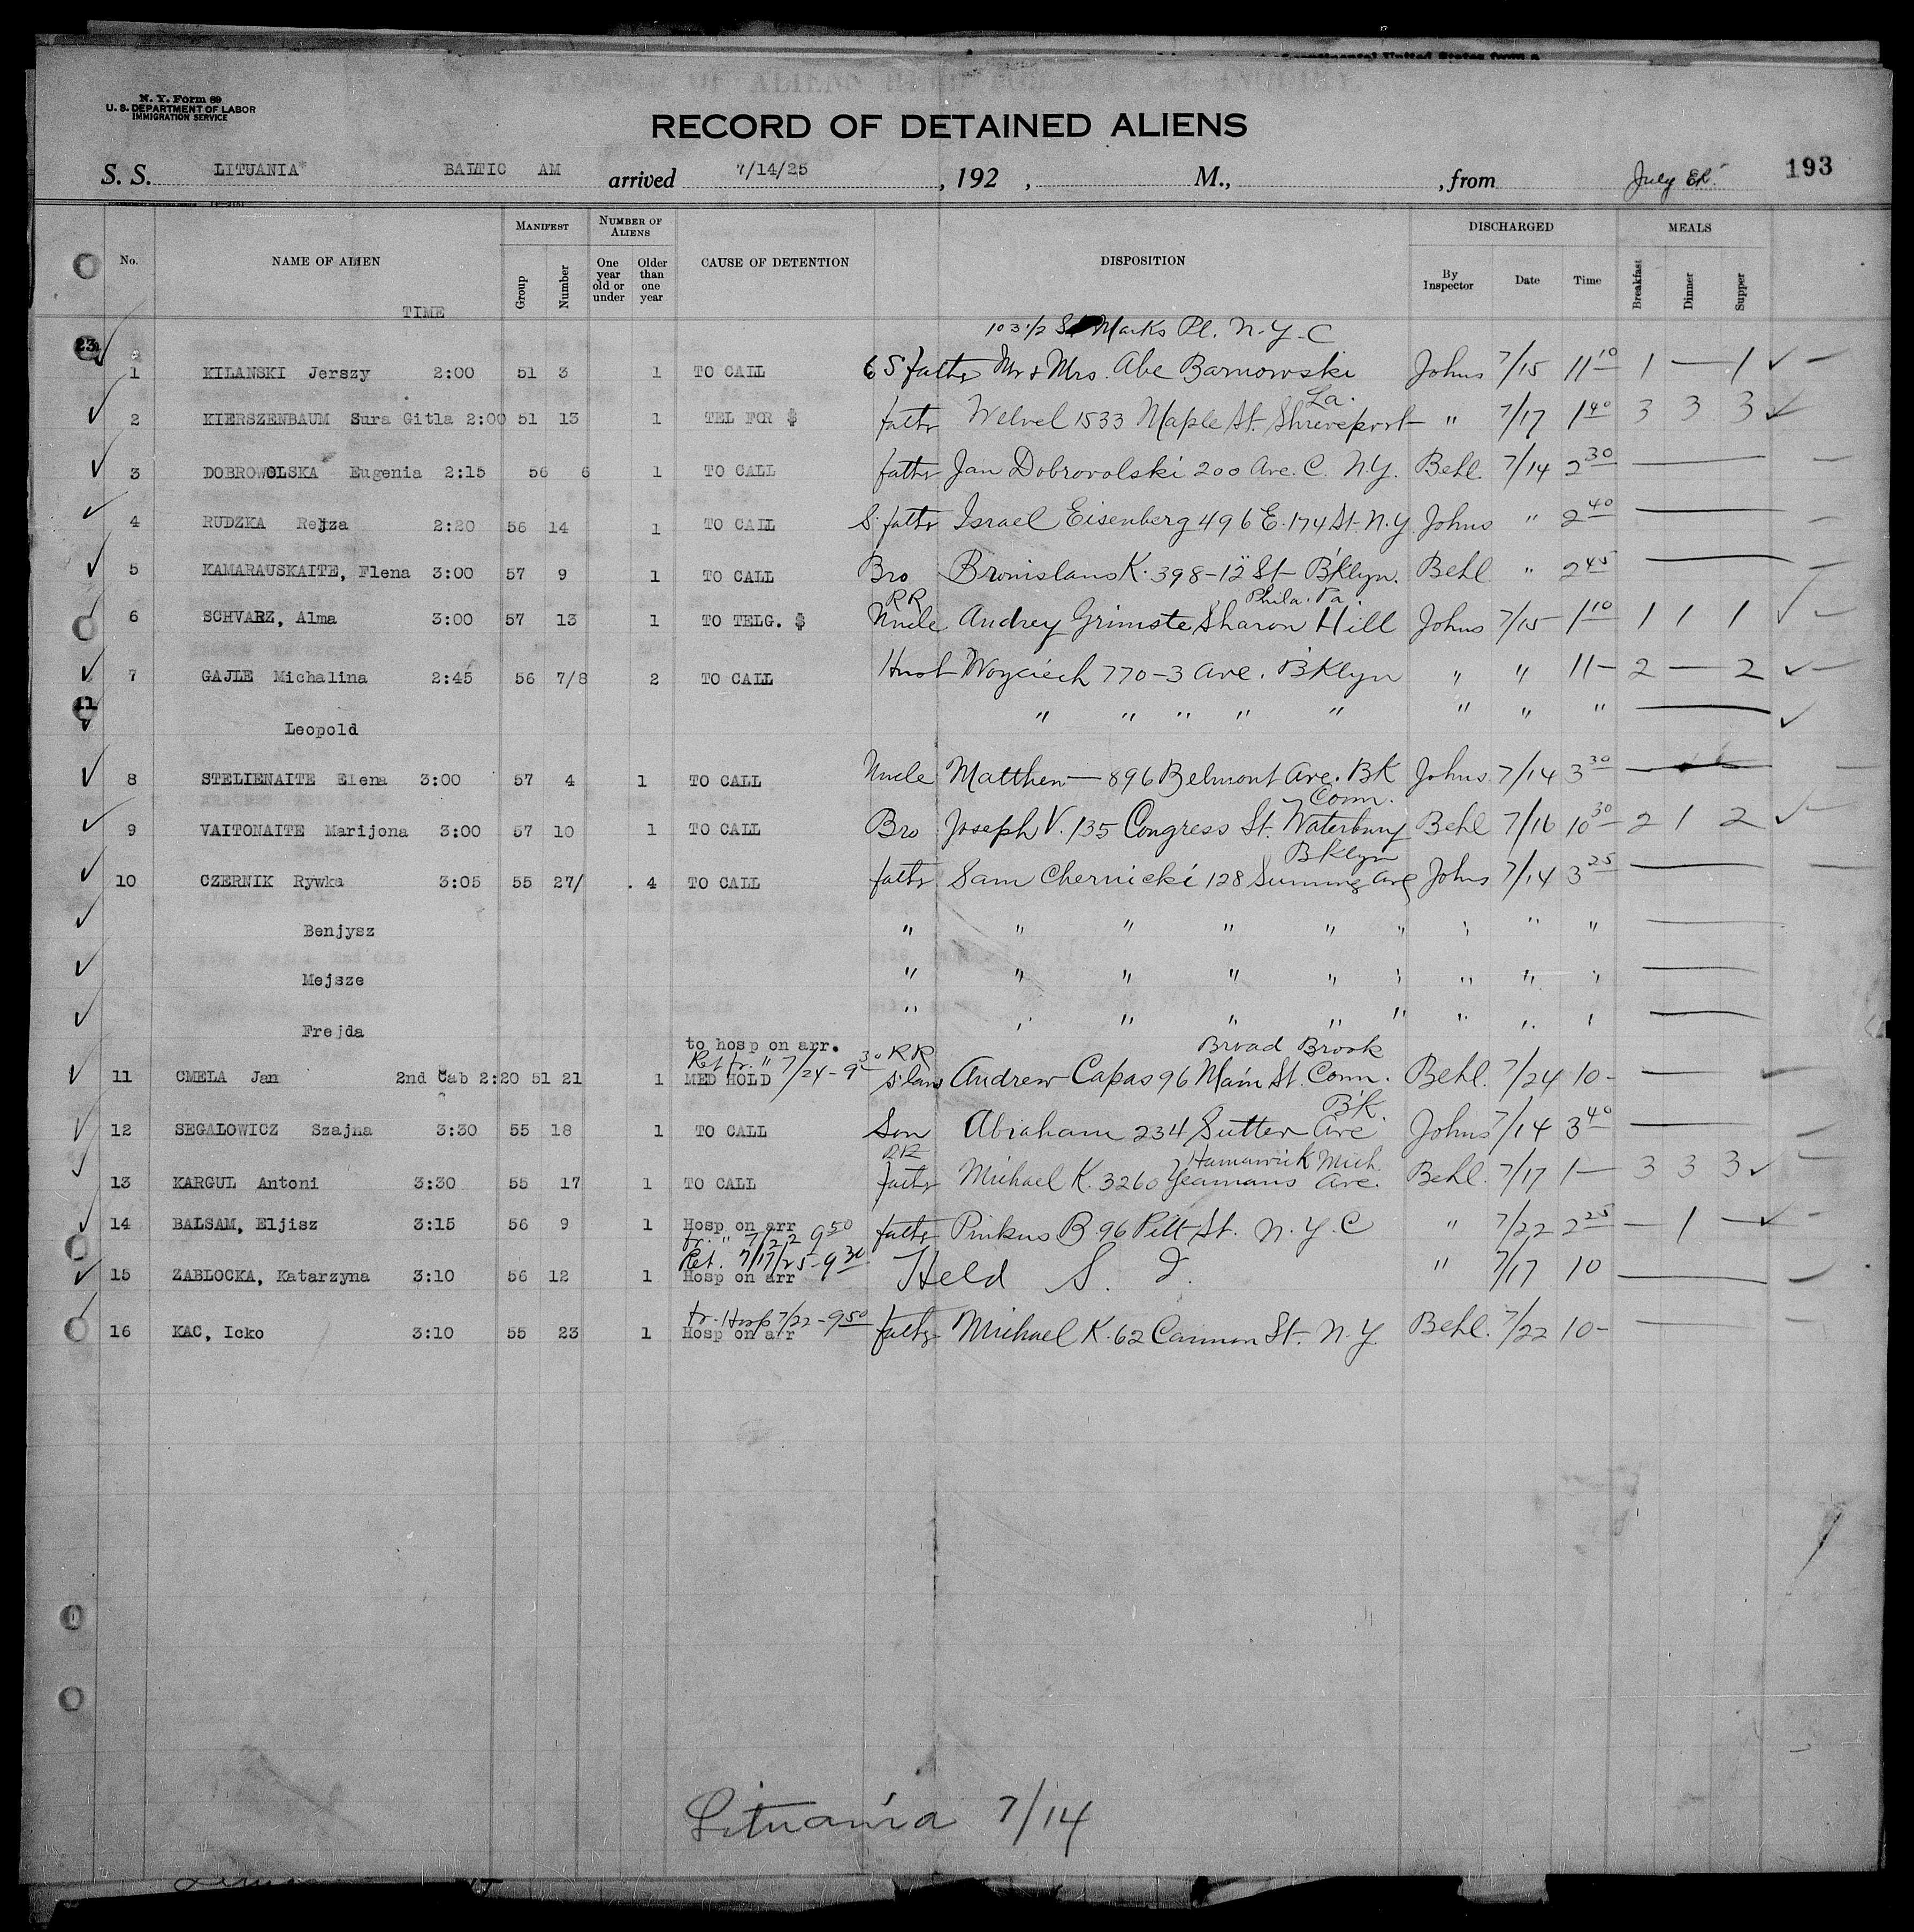 N. Y. Form 89
U. S. DEPARTMENT OF LABOR
IMMIGRATION SERVICE
RECORD OF DETAINED ALIENS
193
S. S. LITUANIA BALTIC AM arrived 7/14/25, 192 , M., , from July
No. NAME OF ALIEN MANIFEST NUMBER OF ALIENS CAUSE OF DETENTION DISPOSITION DISCHARGED MEALS
TIME Group Number One year old or under Older than one year By Inspector Date Time Breakfast Dinner Supper
23
103 1/2 St Marks Pl. N.Y.C
1 KILANSKI Jerszy 2:00 51 3 1 TO CALL 6 S father Mr & Mrs. Abe Barnowski Johns 7/15 11 10 1 — 1
La.
2 KIERSZENBAUM Sura Gitla 2:00 51 13 1 TEL FOR $ father Welvel 1533 Maple St. Shreveport " 7/17 1 40 3 3 3
3 DOBROWOLSKA Eugenia 2:15 56 6 1 TO CALL father Jan Dobrovolski 200 Ave. C. N.Y. Behl 7/14 2 30
4 RUDZKA Rejza 2:20 56 14 1 TO CALL S. father Israel Eisenberg 496 E. 174 St. N.Y Johns " 2 40
5 KAMARAUSKAITE, Flena 3:00 57 9 1 TO CALL Bro Bronislaus K. 398-12 St B'klyn. Behl " 2 45
RR Phila. Pa.
6 SCHVARZ, Alma 3:00 57 13 1 TO TELG. $ Uncle Audrey Grimste Sharon Hill Johns 7/15 1 10 1 1 1
7 GAJLE Michalina 2:45 56 7/8 2 TO CALL Husb Woyciech 770-3 Ave. B'Klyn " " 11— 2 — 2
11
Leopold " " " " " " " "
8 STELIENAITE Elena 3:00 57 4 1 TO CALL Uncle Matthew — 896 Belmont Ave. BK Johns 7/14 3 30
Conn.
9 VAITONAITE Marijona 3:00 57 10 1 TO CALL Bro Joseph V. 135 Congress St. Waterbury Behl 7/16 10 30 2 1 2
BKlyn
10 CZERNIK Rywka 3:05 55 27/ 4 TO CALL father Sam Chernicki 128 Ave Johns 7/14 3 25
Benjysz " " " " " " " " "
Mejsze " " " " " " " " "
Frejda " " " " " " " " "
to hosp on arr. RR Broad Brook
Ret fr. " 7/24-9 30
11 CMELA Jan 2nd Cab 2:20 51 21 1 MED HOLD Andrew Capas 96 Main St. Conn. Behl. 7/24 10-
B'K.
12 SEGALOWICZ Szajna 3:30 55 18 1 TO CALL Son Abraham 234 Sutter Ave Johns 7/14 3 40
RR Mich.
13 KARGUL Antoni 3:30 55 17 1 TO CALL father Michael K. 3260 Yeamans Ave. Behl. 7/17 1— 3 3 3
14 BALSAM, Eljisz 3:15 56 9 1 Hosp on arr father Pinkus B. 96 Pitt St. N.Y.C " 7/22 2 25 — 1 —
fr. " 7/22 9 50
Ret. 7/17/25-9 30
15 ZABLOCKA, Katarzyna 3:10 56 12 1 Hosp on arr Held S. I. " 7/17 10
fr. Hosp 7/22-9 50
16 KAC, Icko 3:10 55 23 1 Hosp on arr father Michael K. 62 Cannon St. N.Y Behl. 7/22 10-
Lituania 7/14